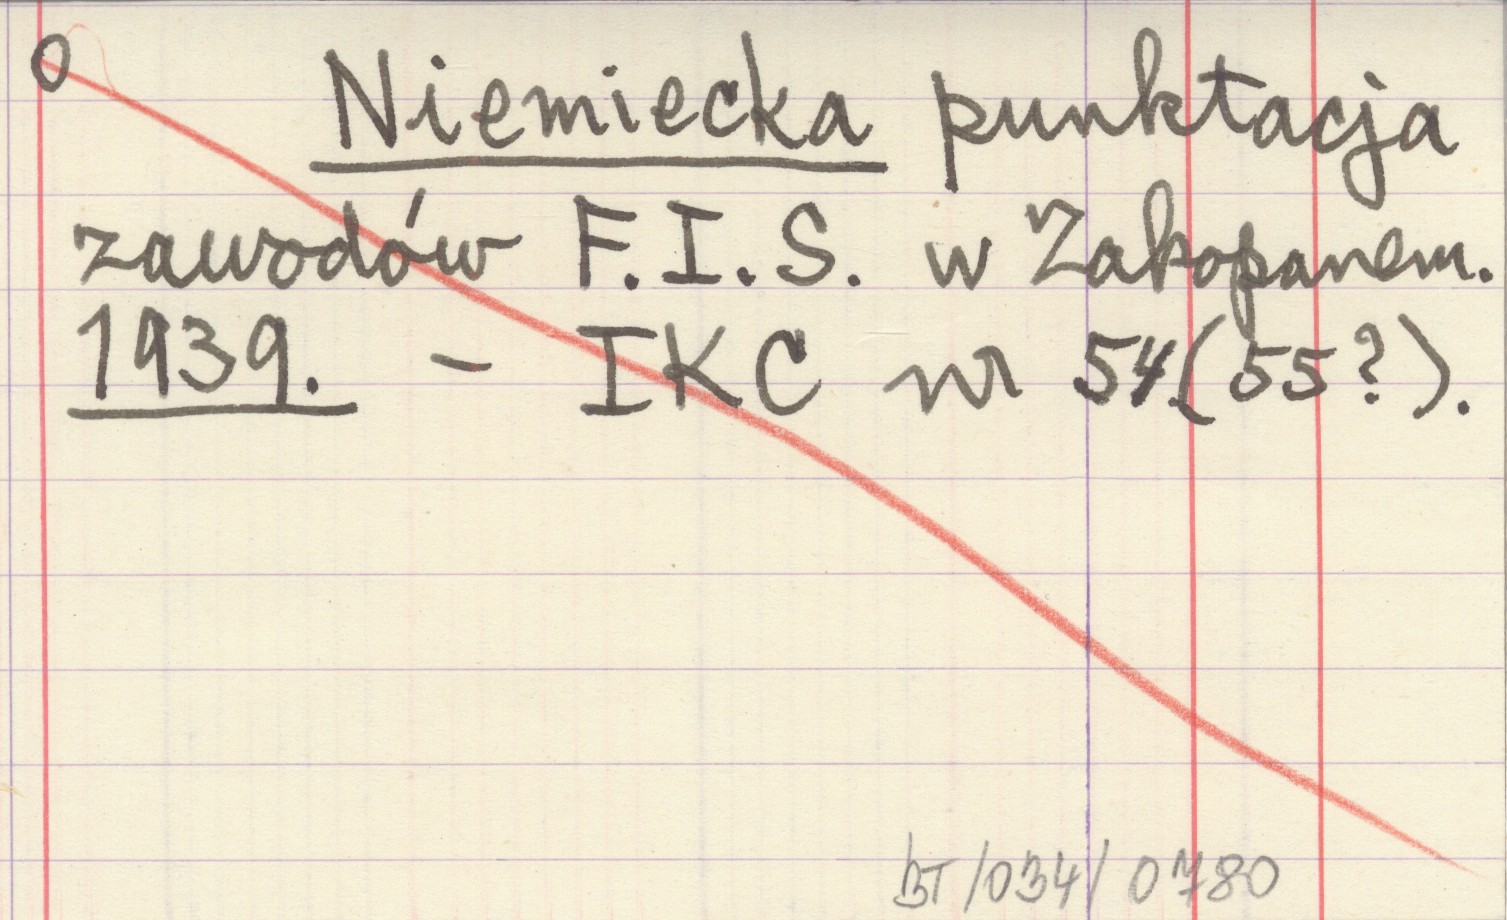 0 Niemiecka punktacja
zawodów F.I.S. w Zakopanem.
1939. – IKC nr 54(55?).
BT/034/0780